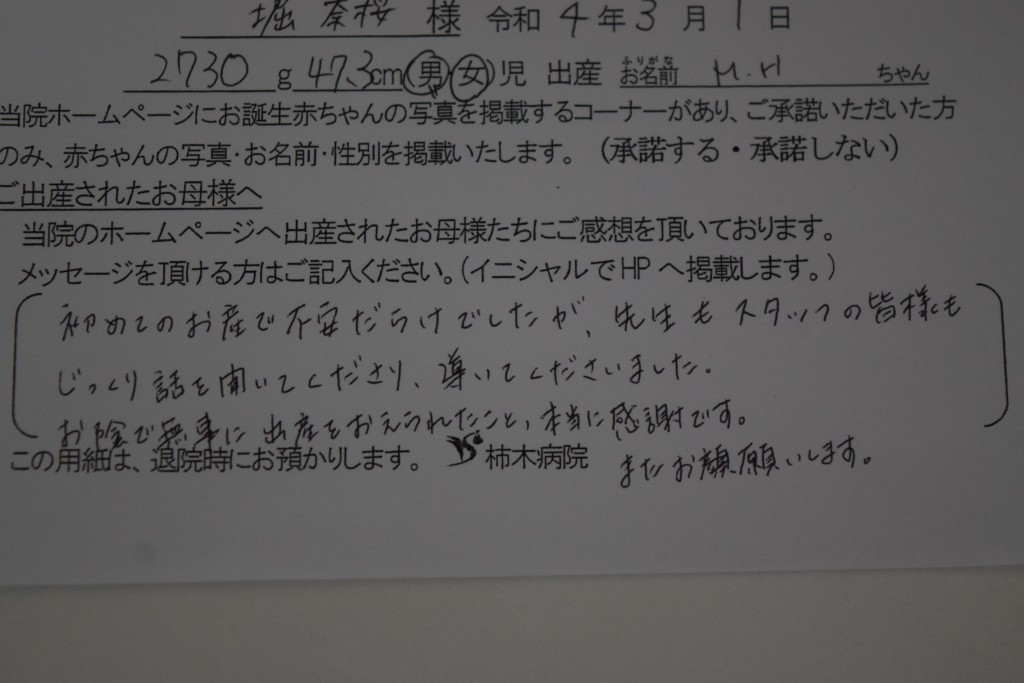 堀 奈桜 様 令和 4 年 3 月 1 日
2730 g 47.3cm (男・女)児 出産 お名前 ふりがな M.H ちゃん
当院ホームページにお誕生赤ちゃんの写真を掲載するコーナーがあり、ご承諾いただいた方
のみ、赤ちゃんの写真・お名前・性別を掲載いたします。 (承諾する・承諾しない)
ご出産されたお母様へ
当院のホームページへ出産されたお母様たちにご感想を頂いております。
メッセージを頂ける方はご記入ください。(イニシャルでHPへ掲載します。)
初めてのお産で不安だらけでしたが、先生もスタッフの皆様も
じっくり話を聞いてくださり、導いてくださいました。
お陰で無事に出産をおえられたこと、本当に感謝です。
またお顔願いします。
この用紙は、退院時にお預かりします。 柿木病院